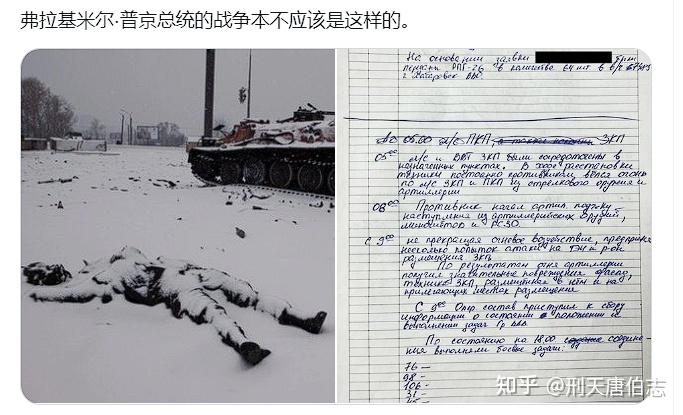 弗拉基米尔·普京总统的战争本不应该是这样的。
На основании заявки
РПГ-26 в количестве 64 шт в
г. Хабаровск
До 05.00 л/с ПКП ЗКП
05⁰⁰ л/с и ВВТ ЗКП были сосредоточены в
назначенных пунктах. В ходе расстановки
техники постоянно противником велся огонь
по л/с ЗКП и ПКП из стрелкового оружия и
артиллерии
08⁰⁰ Противник начал артил. подд-ку
наступления из артиллерийских орудий,
минометов и РСЗО.
С 9⁰⁰ не прекращая огневое воздействие, предпринял
несколько попыток атаки на и р-он
размещения ЗКП.
По результатам огня артиллерии
получил значительные повреждения
техника ЗКП, размещенная в нем и на
прилегающих местах размещения.
С Опер. состав приступил к сбору
информации о состоянии и положении и
выполнении задач Гр
По состоянию на 18.00 соедине-
ния выполняли боевые задачи:
76 —
98 —
106 —
31 —
知乎 @刑天唐伯志